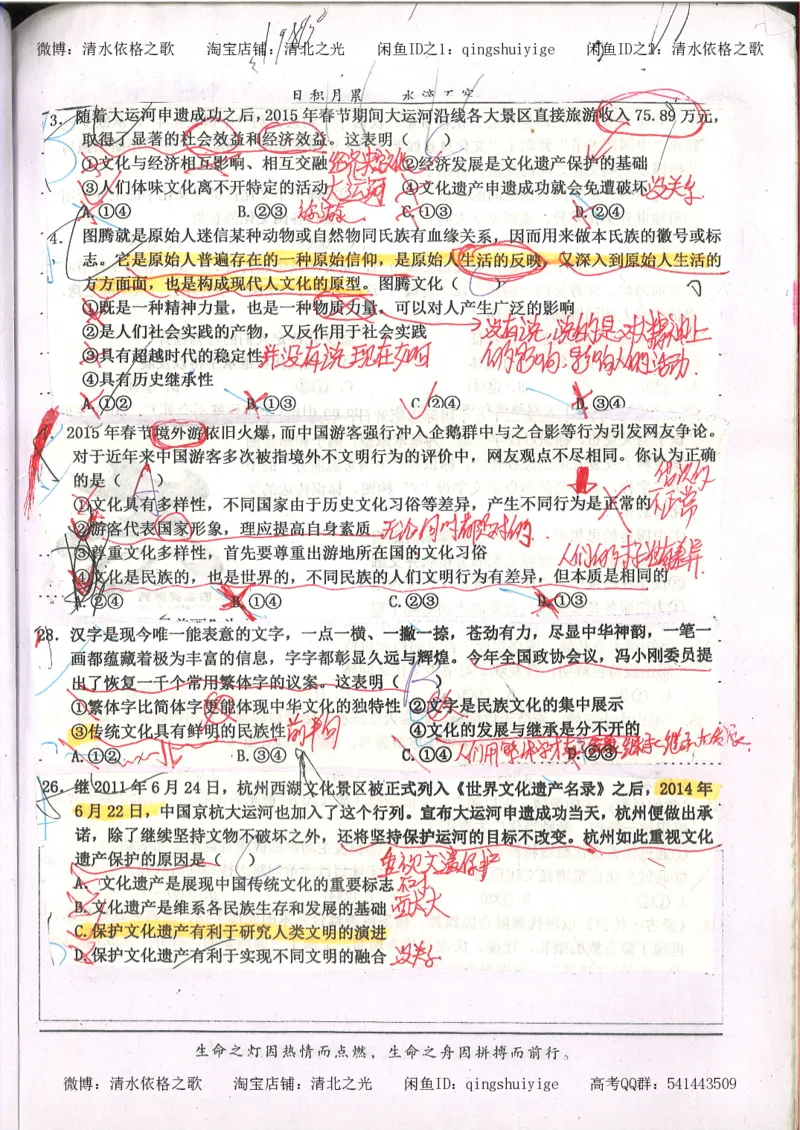 微博：清水依格之歌 淘宝店铺：清北之光 闲鱼ID之1：qingshuiyige 闲鱼ID之2：清水依格之歌
日积月累 水滴石穿
3. 随着大运河申遗成功之后，2015年春节期间大运河沿线各大景区直接旅游收入75.89万元，
取得了显著的社会效益和经济效益。这表明（ ）
①文化与经济相互影响、相互交融 ②经济发展是文化遗产保护的基础
③人们体味文化离不开特定的活动 大运河 ④文化遗产申遗成功就会免遭破坏 没关系
A.①④ B.②③ C.①③ D.②④
4. 图腾就是原始人迷信某种动物或自然物同氏族有血缘关系，因而用来做本氏族的徽号或标
志。它是原始人普遍存在的一种原始信仰，是原始人生活的反映，又深入到原始人生活的
方方面面，也是构成现代人文化的原型。图腾文化（ ）
①既是一种精神力量，也是一种物质力量，可以对人产生广泛的影响
②是人们社会实践的产物，又反作用于社会实践
没有说，说的是对大精神上
③具有超越时代的稳定性 并没有说现在如何
的影响，影响人的活动．
④具有历史继承性
A.①② B.①③ C.②④ D.③④
2015年春节境外游依旧火爆，而中国游客强行冲入企鹅群中与之合影等行为引发网友争论。
对于近年来中国游客多次被指境外不文明行为的评价中，网友观点不尽相同。你认为正确
的是（ ）
错误的
①文化具有多样性，不同国家由于历史文化习俗等差异，产生不同行为是正常的 不正常
②游客代表国家形象，理应提高自身素质 无论何时都是对的
③尊重文化多样性，首先要尊重出游地所在国的文化习俗
④文化是民族的，也是世界的，不同民族的人们文明行为有差异，但本质是相同的
A.②④ B.①④ C.②③ D.①③
28. 汉字是现今唯一能表意的文字，一点一横、一撇一捺，苍劲有力，尽显中华神韵，一笔一
画都蕴藏着极为丰富的信息，字字都彰显久远与辉煌。今年全国政协会议，冯小刚委员提
出了恢复一千个常用繁体字的议案。这表明（ ）
①繁体字比简体字更能体现中华文化的独特性 ②文字是民族文化的集中展示
③传统文化具有鲜明的民族性 前半句 ④文化的发展与继承是分不开的
A.①② B.③④ C.①④ D.②③
26. 继2011年6月24日，杭州西湖文化景区被正式列入《世界文化遗产名录》之后，2014年
6月22日，中国京杭大运河也加入了这个行列。宣布大运河申遗成功当天，杭州便做出承
诺，除了继续坚持文物不破坏之外，还将坚持保护运河的目标不改变。杭州如此重视文化
遗产保护的原因是（ ）
重视文遗保护
A. 文化遗产是展现中国传统文化的重要标志
B. 文化遗产是维系各民族生存和发展的基础
C. 保护文化遗产有利于研究人类文明的演进
D. 保护文化遗产有利于实现不同文明的融合 没关系
生命之灯因热情而点燃，生命之舟因拼搏而前行。
微博：清水依格之歌 淘宝店铺：清北之光 闲鱼ID：qingshuiyige 高考QQ群：541443509